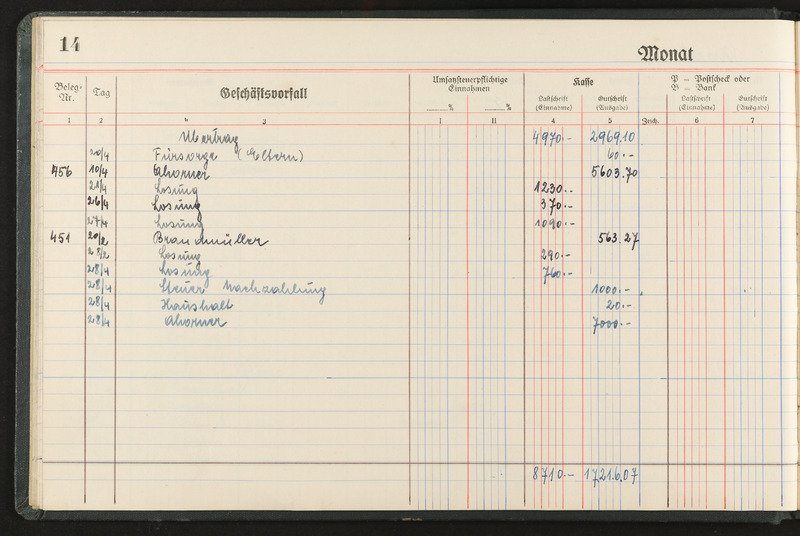 14
Monat
Beleg- Nr. Tag Geschäftsvorfall Umsatzsteuerpflichtige Einnahmen Kasse P = Postscheck oder B = Bank
% % Lastschrift (Einnahme) Gutschrift (Ausgabe) Zeich. Lastschrift (Einnahme) Gutschrift (Ausgabe)
1 2 3 I II 4 5 6 7
Übertrag 4970.- 2969.10
20/4 Fürsorge (Eltern) 60.-
456 10/4 Ahorner 5603.70
21/4 Losung 1230.-
26/4 Losung 370.-
27/4 Losung 1090.-
451 20/2 Braumüller 563.27
28/2 Losung 290.-
28/4 Losung 760.-
28/4 Steuer Nachzahlung 1000.-
28/4 Haushalt 20.-
28/4 Ahorner 7000.-
8710.- 17216.07